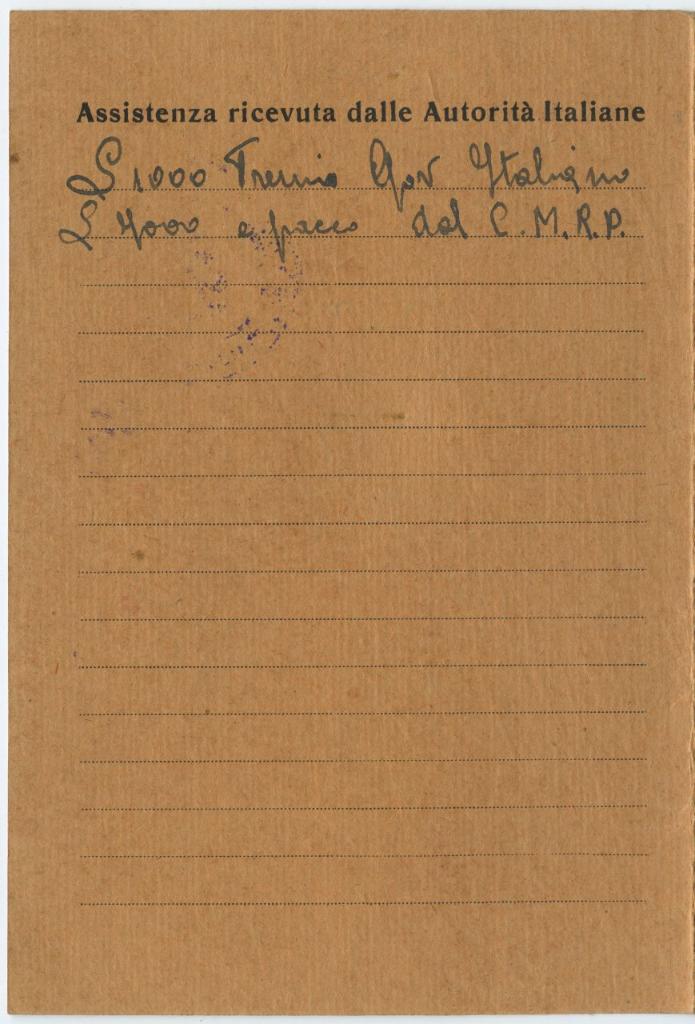 Assistenza ricevuta dalle Autorità Italiane
£ 1000 Premio Gov Italiano
£ 4000 e pacco dal C.M.R.P.